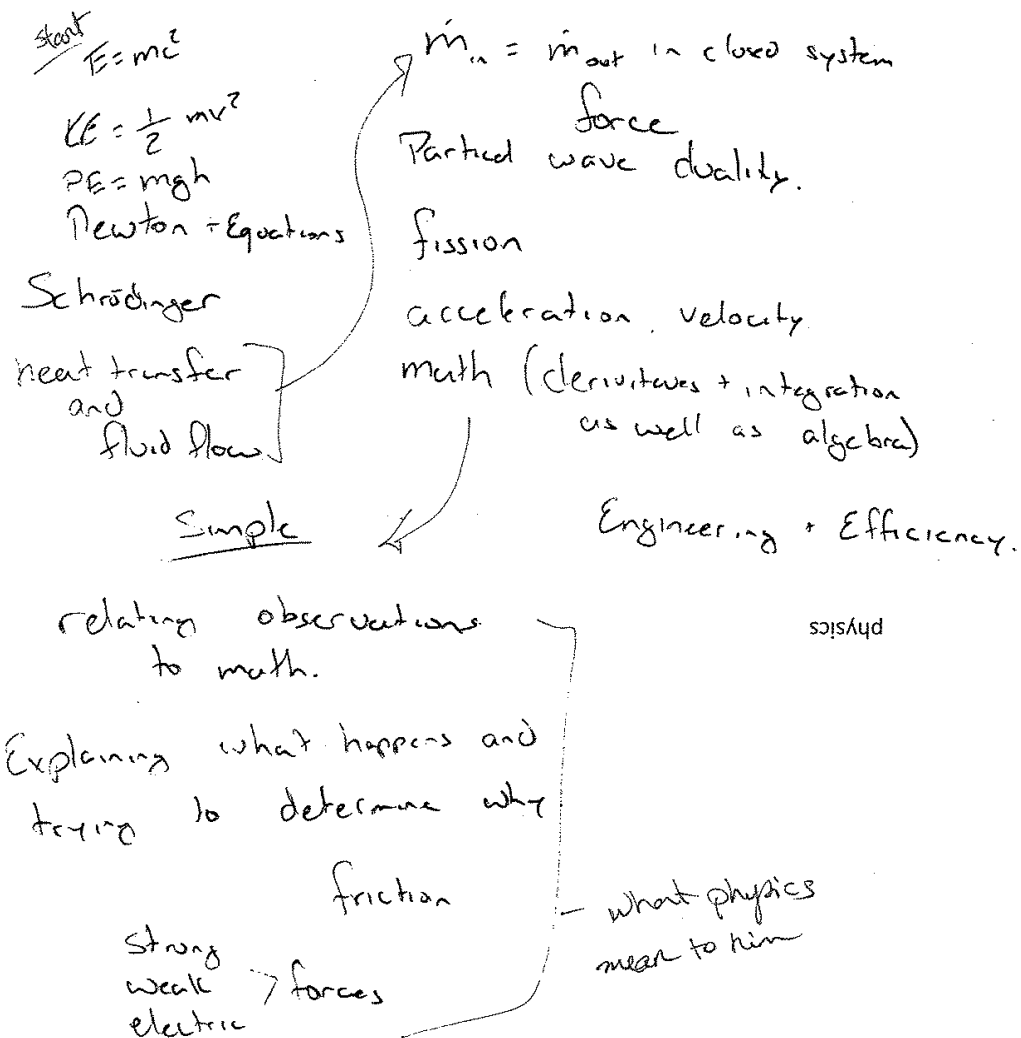 start
E=mc²
KE = 1/2 mv²
PE = mgh
Newton - Equations
Schrödinger
heat transfer
and
fluid flow
ṁ in = ṁ out in closed system
force
Particel wave duality.
fission
acceleration, velocity
math (derivitaves + integration
as well as algebra)
Engineering + Efficiency.
physics
Simple
relating observations
to math.
Explaining what happens and
trying to determine why
friction
strong
weak > forces
electric
- what physics
mean to him